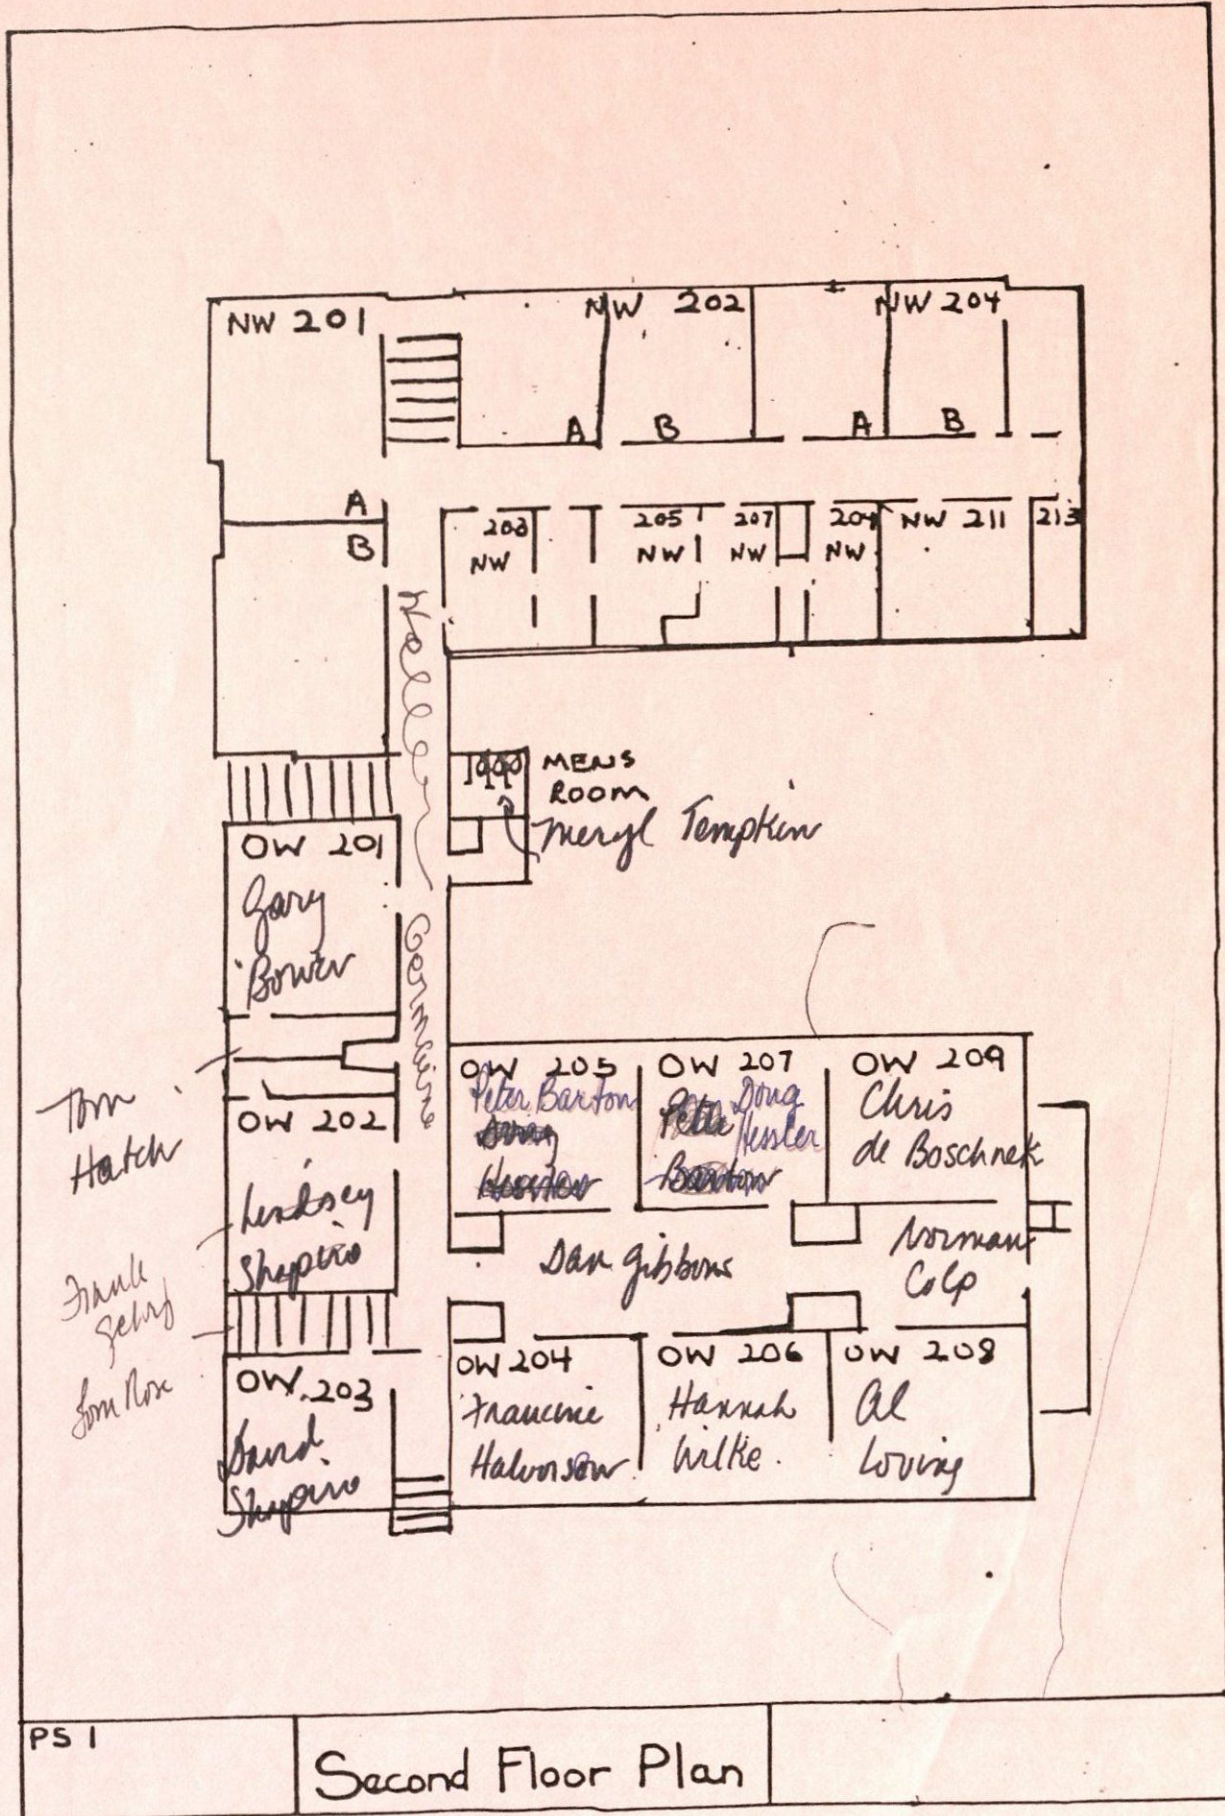 NW 201
NW 202
NW 204
A
B
A
B
A
B
203
NW
205
NW
207
NW
209
NW
NW 211
213
MENS
ROOM
Meryl Tempkin
OW 201
Gary
Bower
Germaine
Tom
Hatch
OW 202
Lindsey
Shapiro
Frank
Tom Rose
OW 203
David
Shapiro
OW 205
Peter Barton
Doug
OW 207
Doug
Hessler
Peter
Barton
OW 209
Chris
de Boschnek
Dan Gibbons
Norman
Colp
OW 204
Francine
Halvorsen
OW 206
Hannah
Wilke.
OW 208
Al
Loving
PS 1
Second Floor Plan